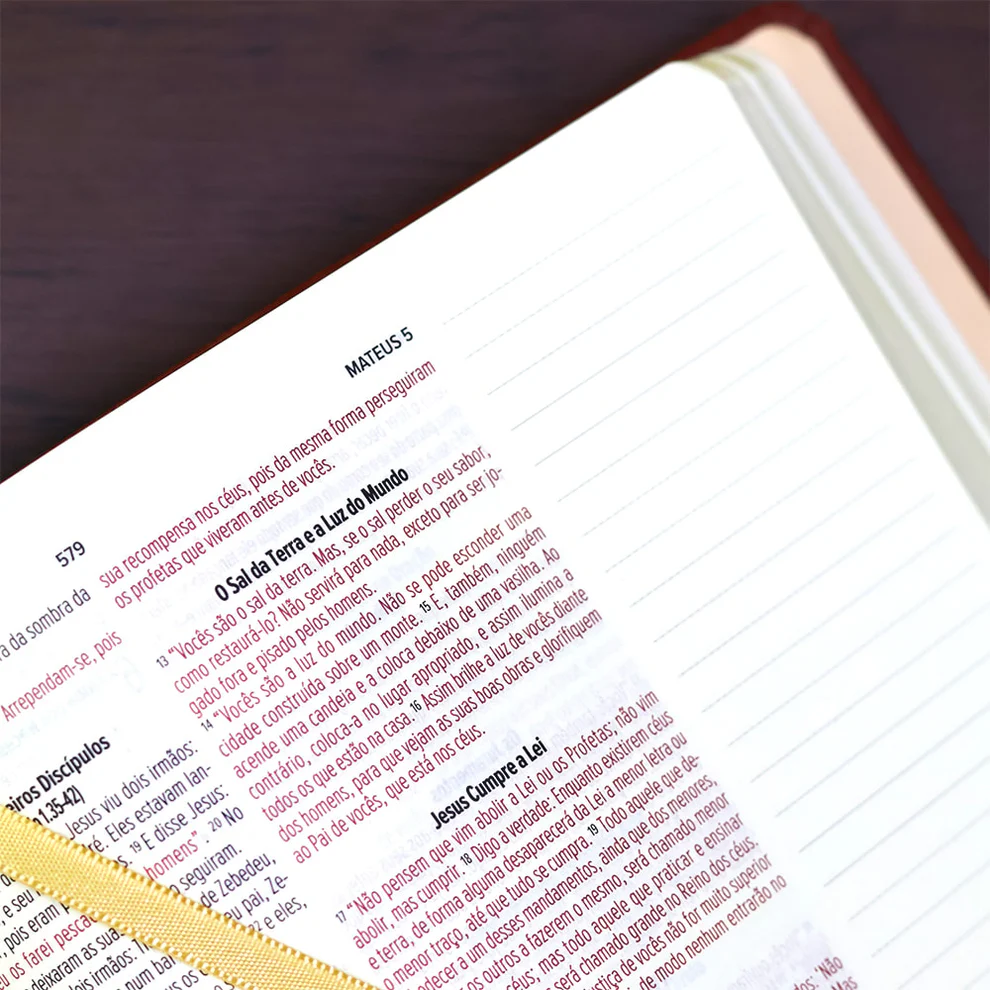 MATEUS 5
579
a da sombra da
Arrependam-se, pois
eiros Discípulos
01.35-42)
Jesus viu dois irmãos:
ré. Eles estavam lan-
s. 19 E disse Jesus:
homens". 20 No
seguiram.
de Zebedeu,
eu pai, Ze-
22 e eles,
e seu
pois eram
u os farei pesca
deixaram as sua
ois irmãos: Ti
num ba
sua recompensa nos céus, pois da mesma forma perseguiram
os profetas que viveram antes de vocês.
O Sal da Terra e a Luz do Mundo
13 "Vocês são o sal da terra. Mas, se o sal perder o seu sabor,
como restaurá-lo? Não servirá para nada, exceto para ser jo-
gado fora e pisado pelos homens.
14 "Vocês são a luz do mundo. Não se pode esconder uma
cidade construída sobre um monte. 15 E, também, ninguém
acende uma candeia e a coloca debaixo de uma vasilha. Ao
contrário, coloca-a no lugar apropriado, e assim ilumina a
todos os que estão na casa. 16 Assim brilhe a luz de vocês diante
dos homens, para que vejam as suas boas obras e glorifiquem
ao Pai de vocês, que está nos céus.
Jesus Cumpre a Lei
17 "Não pensem que vim abolir a Lei ou os Profetas; não vim
abolir, mas cumprir. 18 Digo a verdade: Enquanto existirem céus
e terra, de forma alguma desaparecerá da Lei a menor letra ou
o menor traço, até que tudo se cumpra. 19 Todo aquele que de-
sobedecer a um desses mandamentos, ainda que dos menores,
os outros a fazerem o mesmo, será chamado menor
céus; mas todo aquele que praticar e ensinar
será chamado grande no Reino dos céus.
justiça de vocês não for muito superior
de modo nenhum entrarão no
dos: 'Não
Mas